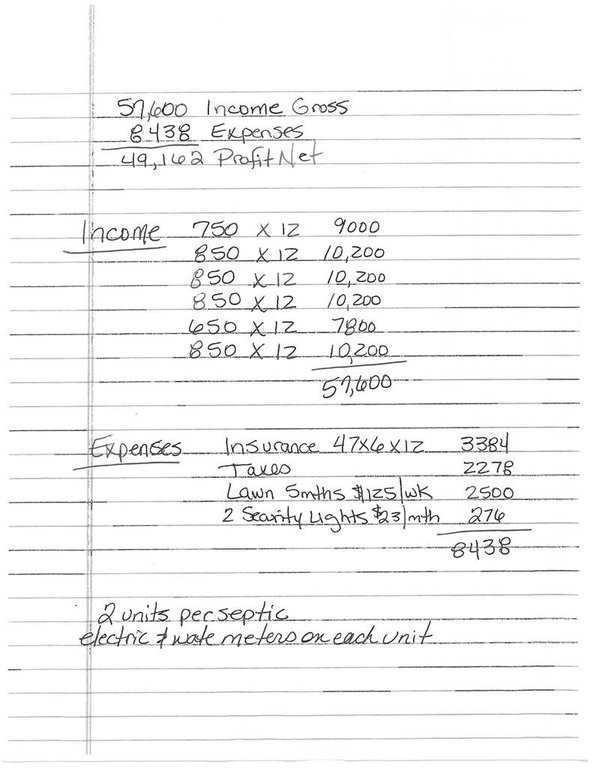 57,600 Income Gross
8438 Expenses
49,162 Profit Net
Income 750 X 12 9000
850 X 12 10,200
850 X 12 10,200
850 X 12 10,200
650 X 12 7800
850 X 12 10,200
57,600
Expenses Insurance 47X6X12 3384
Taxes 2278
Lawn 5mths $125/wk 2500
2 Security Lights $23/mth 276
8438
2 units per septic
electric & wate meters on each unit